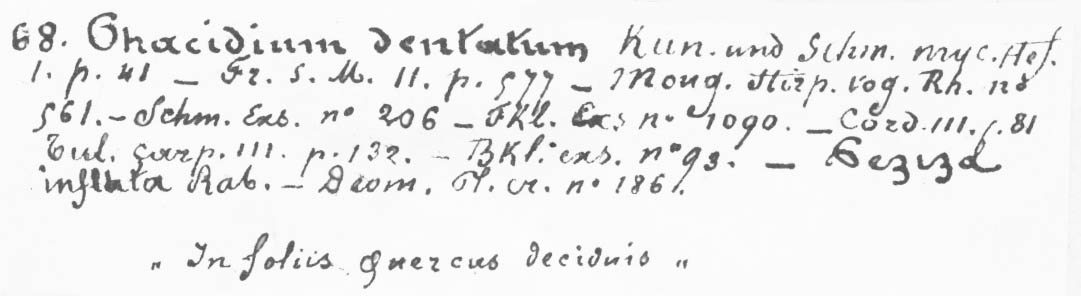 68. Phacidium dentatum Kun. und Schm. myc. Hef.
1. p. 41 — Fr. S. M. 11. p. 577 — Moug. Stirp. vog. Rh. no
561. — Schm. Exs. no 206 — Fkl. Exs no 1090. — Cord. 111. p. 81
Tul. Carp. 111. p. 132. — BKl. exs. no 93. — Peziza
inflata Rab. — Desm. Pl. cr. no 1861.
„ In foliis Quercus deciduis „